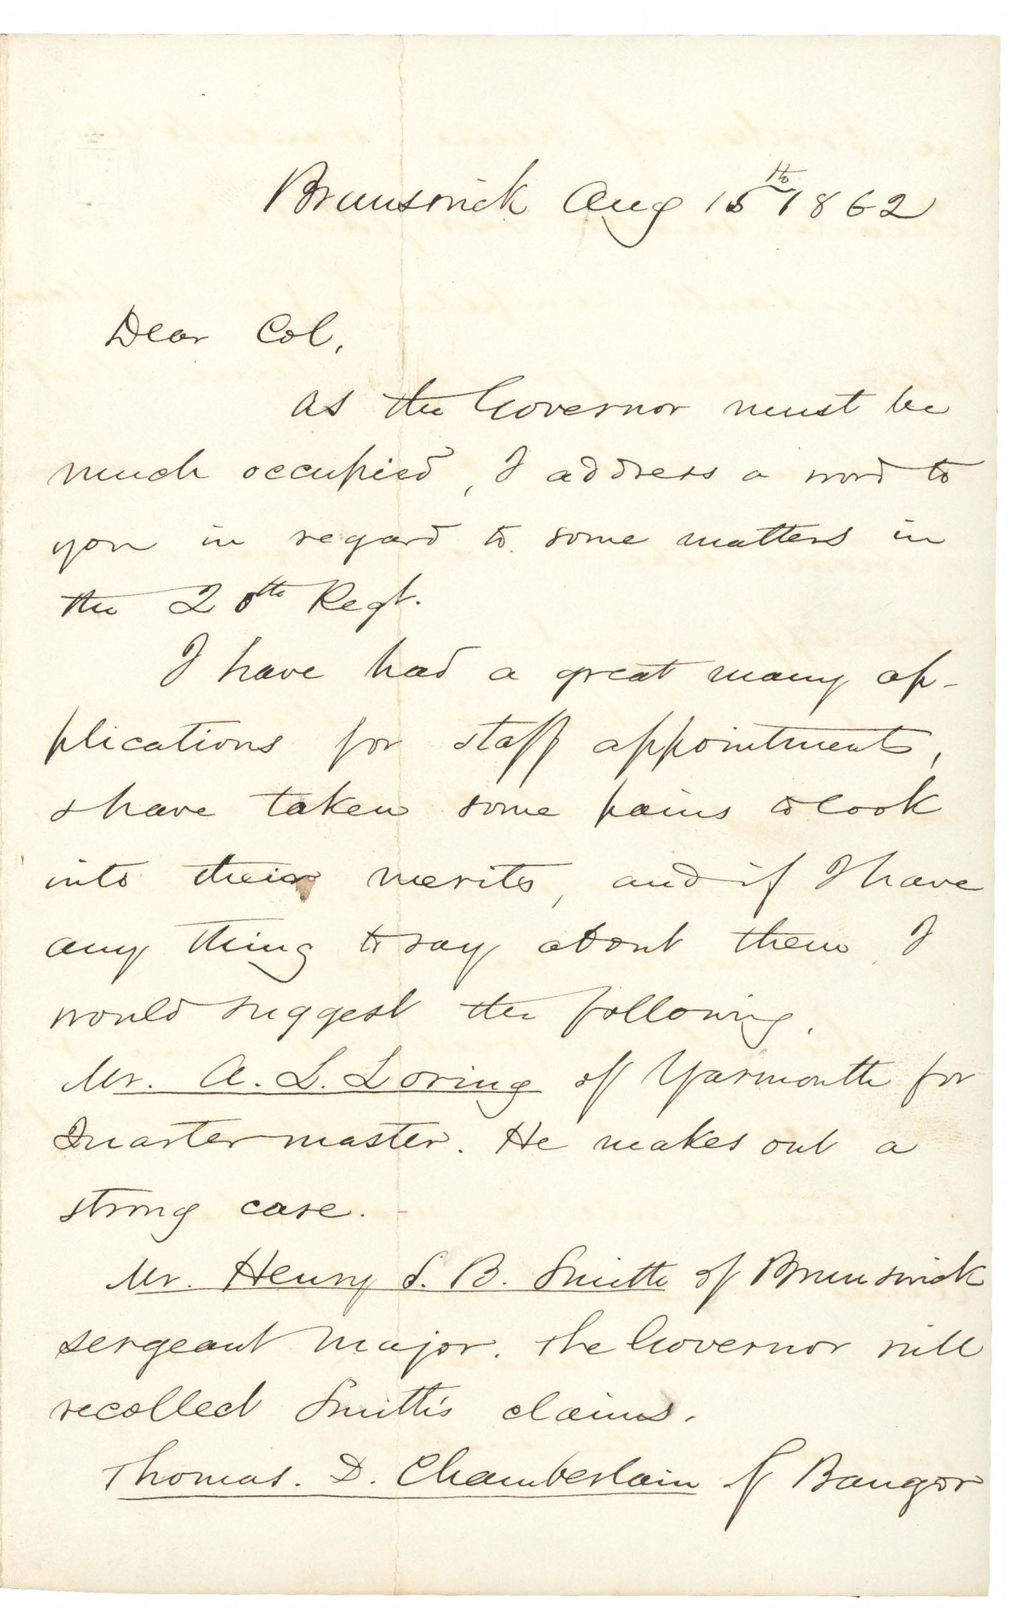 Brunswick Aug 15th 1862
Dear Col,
As the Governor must be
much occupied, I address a word to
you in regard to some matters in
the 20th Regt.
I have had a great many ap-
plications for staff appointments,
& have taken some pains to look
into their merits, and if I have
any thing to say about them, I
would suggest the following.
Mr. A. L. Loring of Yarmouth for
Quarter master. He makes out a
strong case.
Mr. Henry S. B. Smith of Brunswick
sergeant major. The Governor will
recollect Smith's claims.
Thomas. D. Chamberlain of Bangor